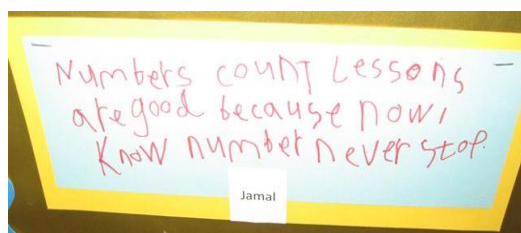 Numbers count Lessons
are good because now I
Know number never stop.
Jamal